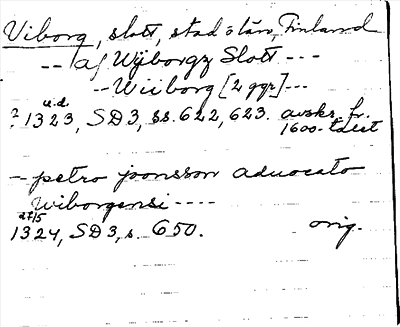 Viborg, slott, stad o län, Finland
-- af Wijborgz Slott ---
-- Wiiborg [2 ggr] ---
u.d.
? 1323, SD3, ss. 622, 623. avskr. fr.
1600-talet
- petro joonsson aduocato
Wiborgensi ----
27/5
1324, SD3, s. 650. orig.